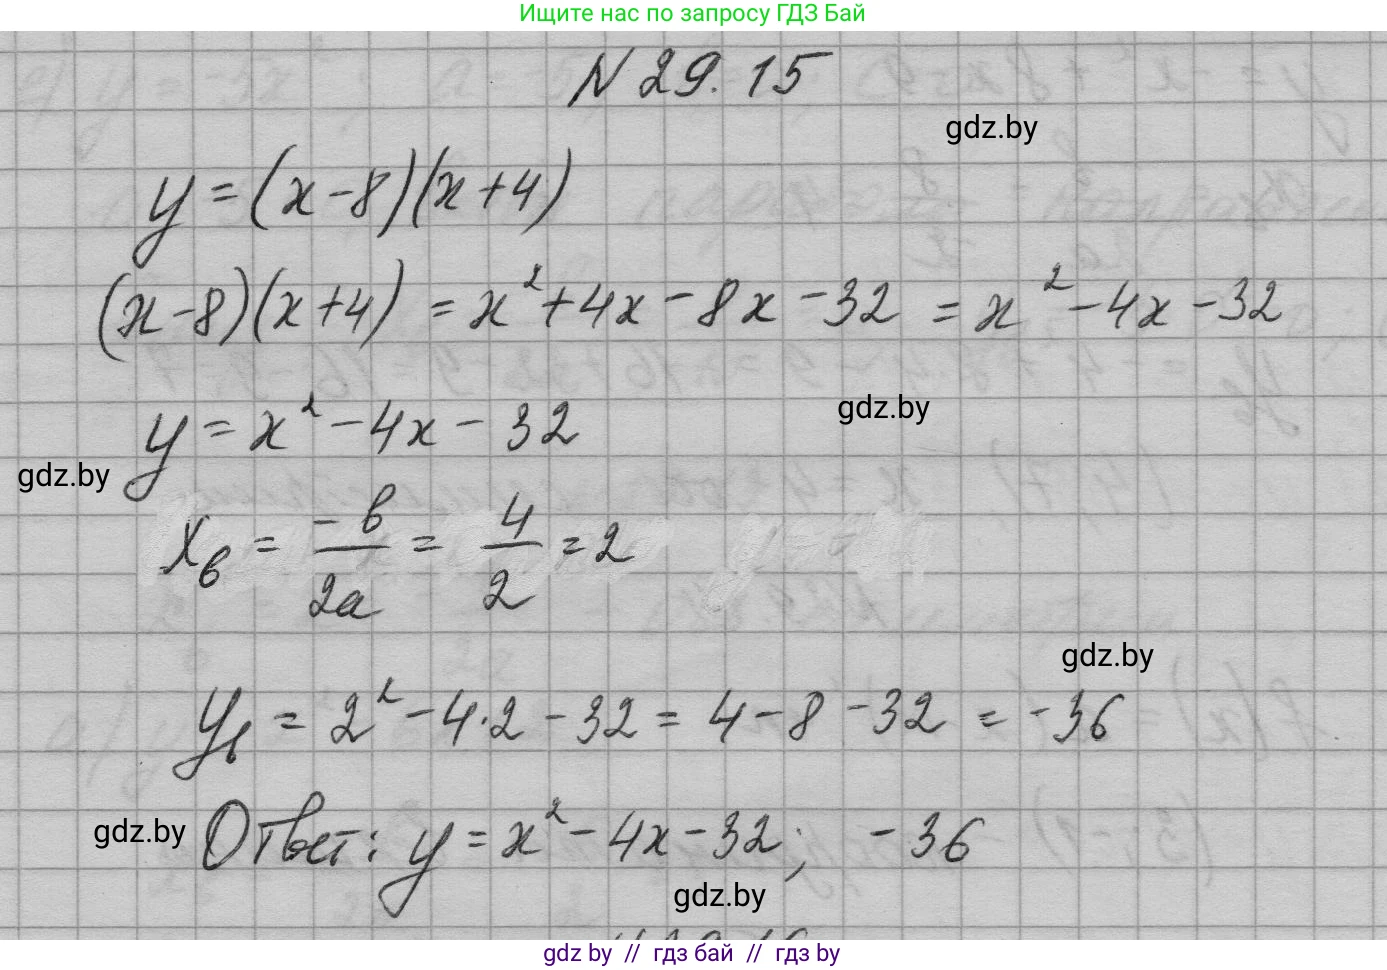 Ищите нас по запросу ГДЗ Бай
N 29.15
gdz.by
y = (x-8)(x+4)
(x-8)(x+4) = x² + 4x - 8x - 32 = x² - 4x - 32
y = x² - 4x - 32
gdz.by
gdz.by
xв = -в/2a = 4/2 = 2
gdz.by
yв = 2² - 4·2 - 32 = 4 - 8 - 32 = -36
gdz.by
Ответ: y = x² - 4x - 32; -36
gdz.by
gdz by // гдз бай // гдз by